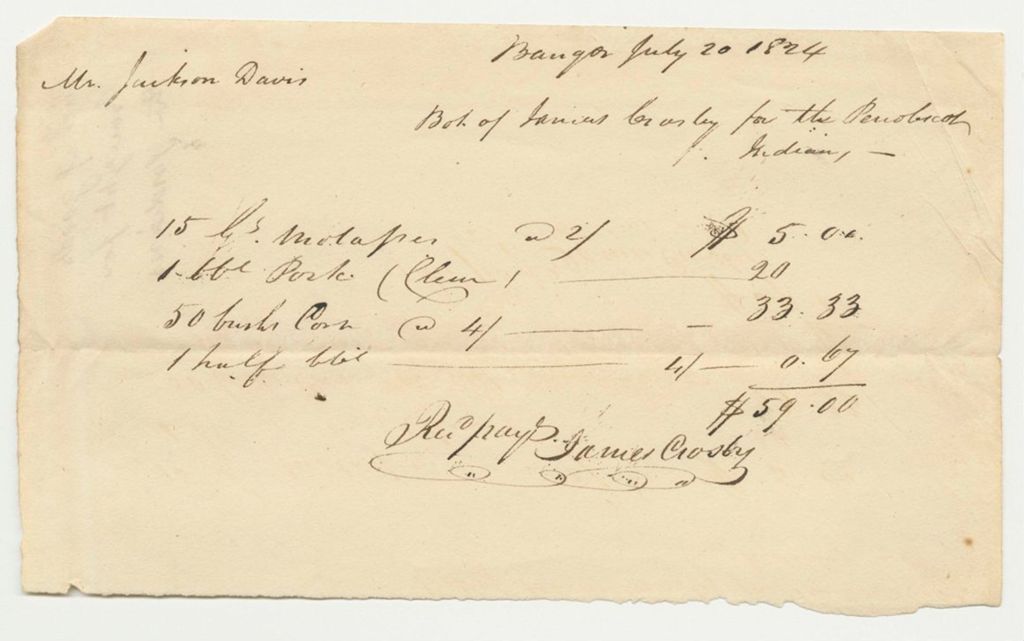 Bangor July 20 1824
Mr. Jackson Davis
Bot. of James Crosby for the Penobscot
Indians, —
15 Gs. Molasses @ 2/ $ 5.00
1 bbl Pork (Clear) — 20
50 bushs Corn @ 4/ — — 33.33
1 half bbl — 4/ — 0.67
$59.00
Recd. payt. James Crosby